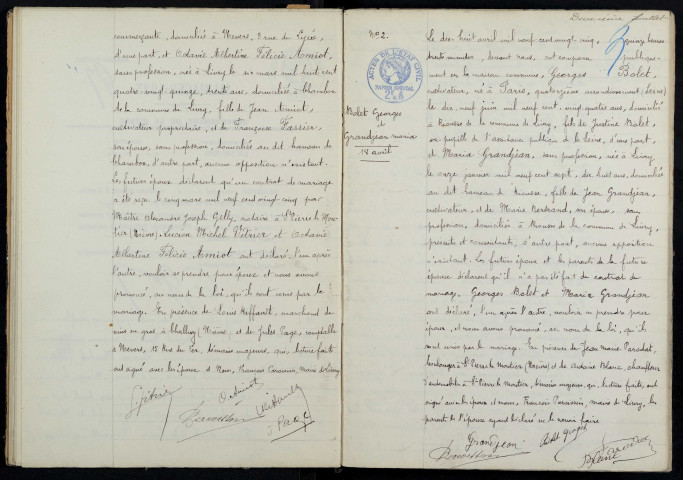 commerçante, domicilié à Nevers, 2 rue du Lycée,
d'une part, et Octavie Albertine Félicie Amiot,
sans profession, née à Livry le six mars mil huit cent
quatre vingt quinze, trente ans, domiciliée à Chambon
de la commune de Livry, fille de Jean Amiot,
cultivateur propriétaire, et de Françoise Tassier,
son épouse, sans profession, domiciliés au dit hameau de
Chambon, d'autre part, aucune opposition n'existant.
Les futurs époux déclarent qu'un contrat de mariage
a été reçu le cinq mars mil neuf cent vingt cinq par
Maître Alexandre Joseph Gelly, notaire à St Pierre le Mou-
tier (Nièvre). Lucien Michel et Octavie
Albertine Félicie Amiot ont déclaré l'un après
l'autre, vouloir se prendre pour époux et nous avons
prononcé, au nom de la loi, qu'ils sont unis par le
mariage. En présence de Louis, marchand de
vins en gros à Challuy (Nièvre) et de Jules Page, comptable
à Nevers, 15 Rue du Fer, témoins majeurs, qui, lecture faite
ont signé avec les époux et Nous, François, Maire de Livry.
O Amiot
J. Page
Deuxième feuillet
No 2.
ACTES DE L'ÉTAT CIVIL
Bolet Georges
et
Grandjean Maria
18 avril
Le dix huit avril mil neuf cent vingt cinq, quinze heures
trente minutes, devant nous, ont comparu publique-
ment en la maison commune, Georges Bolet,
cultivateur, né à Paris, quatorzième arrondissement (Seine)
le dix neuf juin mil neuf cent, vingt quatre ans, domicilié
à Riousse de la commune de Livry, fils de Justine Bolet,
ex pupille de l'assistance publique de la Seine, d'une part,
et Maria Grandjean, sans profession, née à Livry,
le onze janvier mil neuf cent sept, dix huit ans, domiciliée
au dit hameau de Riousse, fille de Jean Grandjean,
cultivateur, et de Marie Bertrand, son épouse, sans
profession, domiciliés à Riousse de la commune de Livry,
présents et consentants, d'autre part, aucune opposition
n'existant. Les futurs époux et les parents de la future
épouse déclarent qu'il n'a pas été fait de contrat de
mariage. Georges Bolet et Maria Grandjean
ont déclaré, l'un après l'autre, vouloir se prendre pour
époux, et nous avons prononcé, au nom de la loi, qu'ils
sont unis par le mariage. En présence de Jean Marie,
boulanger à St Pierre le Moutier (Nièvre) et de Antoine Blanc, chauffeur
d'automobile à St Pierre le Moutier, témoins majeurs, qui, lecture faite, ont
signé avec les époux et nous, François, maire de Livry, les
parents de l'épouse ayant déclaré ne le savoir faire
Grandjean
Bolet Georges
Blanc